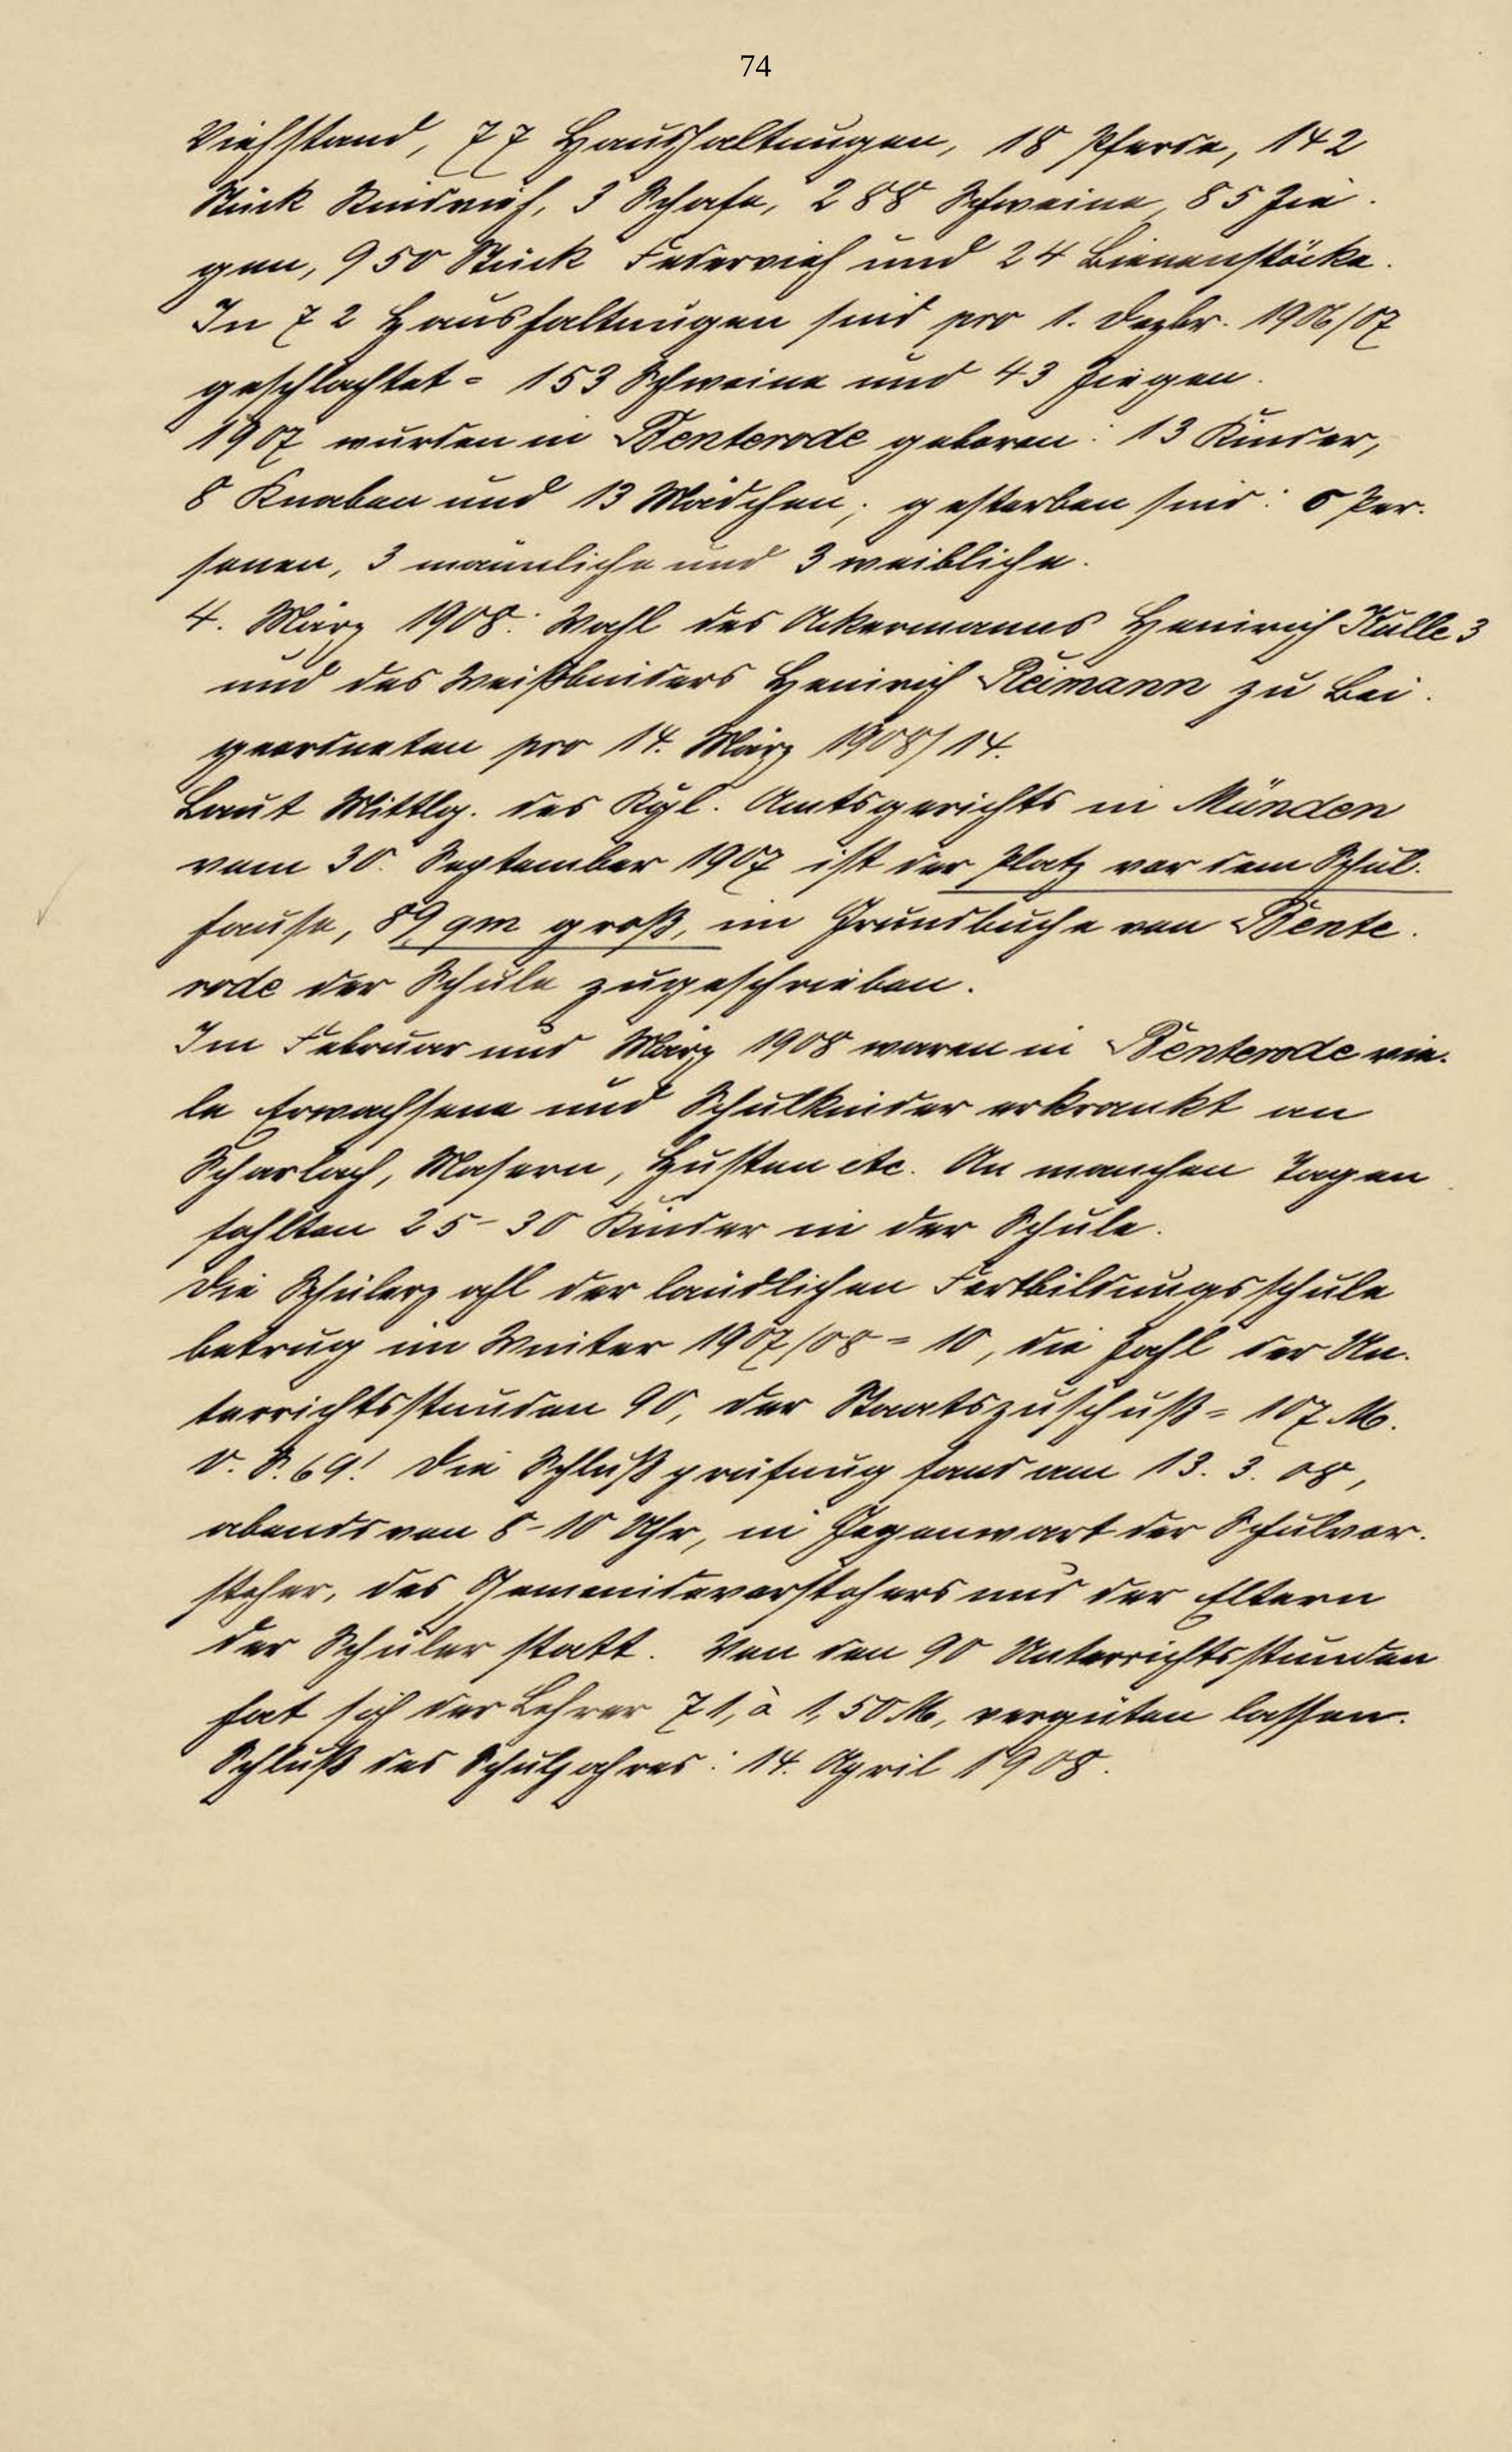 74
Viehstand, 77 Haushaltungen, 18 Pferde, 142
Stück Rindvieh, 3 Schafe, 288 Schweine, 85 Zie-
gen, 950 Stück Federvieh und 24 Bienenstöcke.
In 72 Haushaltungen sind pro 1. Dezbr. 1906/07
geschlachtet = 153 Schweine und 43 Ziegen.
1907 wurden in Benterode geboren: 13 Kinder,
8 Knaben und 13 Mädchen; gestorben sind: 6 Per-
sonen, 3 männliche und 3 weibliche.
4. März 1908: Wahl des Ackermanns Heinrich Kulle 3
und des Weißbinders Heinrich Reimann zu Bei-
geordneten pro 14. März 1908/14.
Laut Mittlg. des Kgl. Amtsgerichts in Münden
vom 30. September 1907 ist der Platz vor dem Schul-
hause, 89 qm groß, im Grundbuche von Bente-
rode der Schule zugeschrieben.
Im Februar und März 1908 waren in Benterode vie-
le Erwachsene und Schulkinder erkrankt an
Scharlach, Masern, Husten etc. An manchen Tagen
fehlten 25-30 Kinder in der Schule.
Die Schülerzahl der ländlichen Fortbildungsschule
betrug im Winter 1907/08 = 10, die Zahl der Un-
terrichtsstunden 90, der Staatszuschuß = 107 M.
v. S. 69! Die Schlußprüfung fand am 13. 3. 08,
abends von 8-10 Uhr, in Gegenwart der Schulvor-
steher, des Gemeindevorstehers und der Eltern
der Schüler statt. Von den 90 Unterrichtsstunden
hat sich der Lehrer 71, à 1,50 M, vergüten lassen.
Schluß des Schuljahres: 14. April 1908.